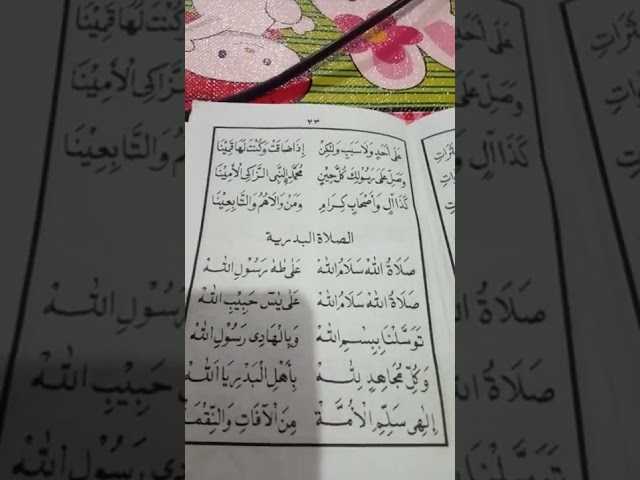 ٢٣
عَلَى أَحَدٍ وَلَا سَبَبٍ وَلَكِنْ إِذَا ضَاقَتْ وَكُنْتَ لَهَا قَمِيْنَا
وَصَلِّ عَلَى رَسُولِكَ كُلَّ حِيْنٍ مُحَمَّدٍ النَّبِى الزَّاكِى الْأَمِيْنَا
كَذَا آلٍ وَأَصْحَابٍ كِرَامٍ وَمَنْ وَالَاهُمُ وَالتَّابِعِيْنَا
الصلاة البدرية
صَلَاةُ اللهْ سَلَامُ اللهْ عَلَى طٰهٰ رَسُوْلِ اللهْ
صَلَاةُ اللهْ سَلَامُ اللهْ عَلَى يٰسٓ حَبِيْبِ اللهْ
تَوَسَّلْنَا بِبِسْمِ اللهْ وَبِالْهَادِى رَسُوْلِ اللهْ
وَكُلِّ مُجَاهِدٍ لِلّٰهْ بِأَهْلِ الْبَدْرِ يَا اَللهْ
اِلٰهِى سَلِّمِ الْاُمَّةْ مِنَ الْآفَاتِ وَالنِّقْمَ